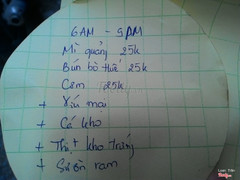 6AM - 9PM
Mì quảng 25k
Bún bò Huế 25k
Cơm 25k
+ Xíu mại
+ Cá kho
+ Thịt kho trứng
+ Sườn ram